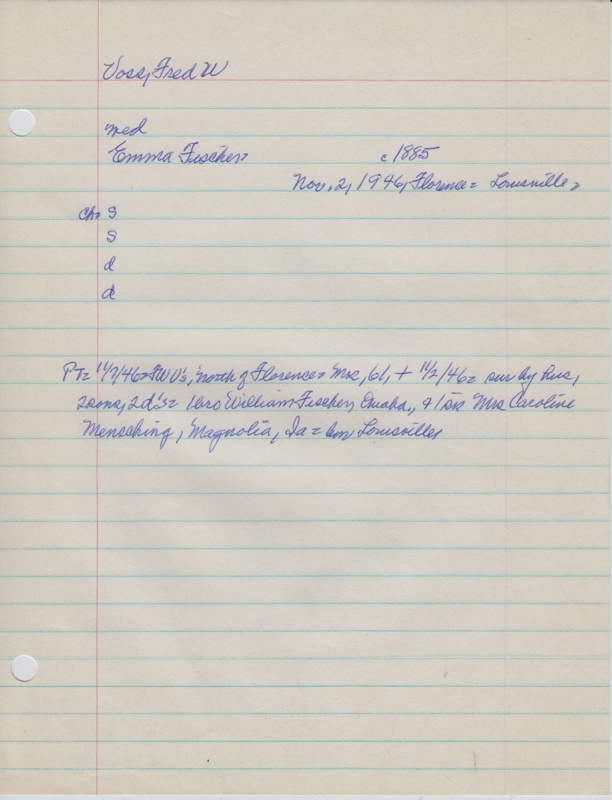 Voss, Fred W
med
Emma Fischer
c 1885
Nov. 2, 1946, Florence = Louisville,
ch = s
s
d
d
PT = 11/7/46 = FWV's, north of Florence = Mrs, 61, + 11/2/46 = sur by hus,
2 sons, 2 d's = 1 bro William Fischer, Omaha, & 1 sis Mrs Caroline
Mensching, Magnolia, Ia = Louisville